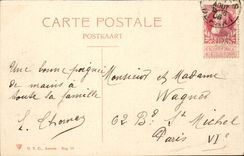 CARTE POSTALE
POSTKAART
Une bonne poignée
de mains à
toute la famille
E. Thomas
Monsieur et Madame
Wagner
62 Bd St Michel
Paris VIe